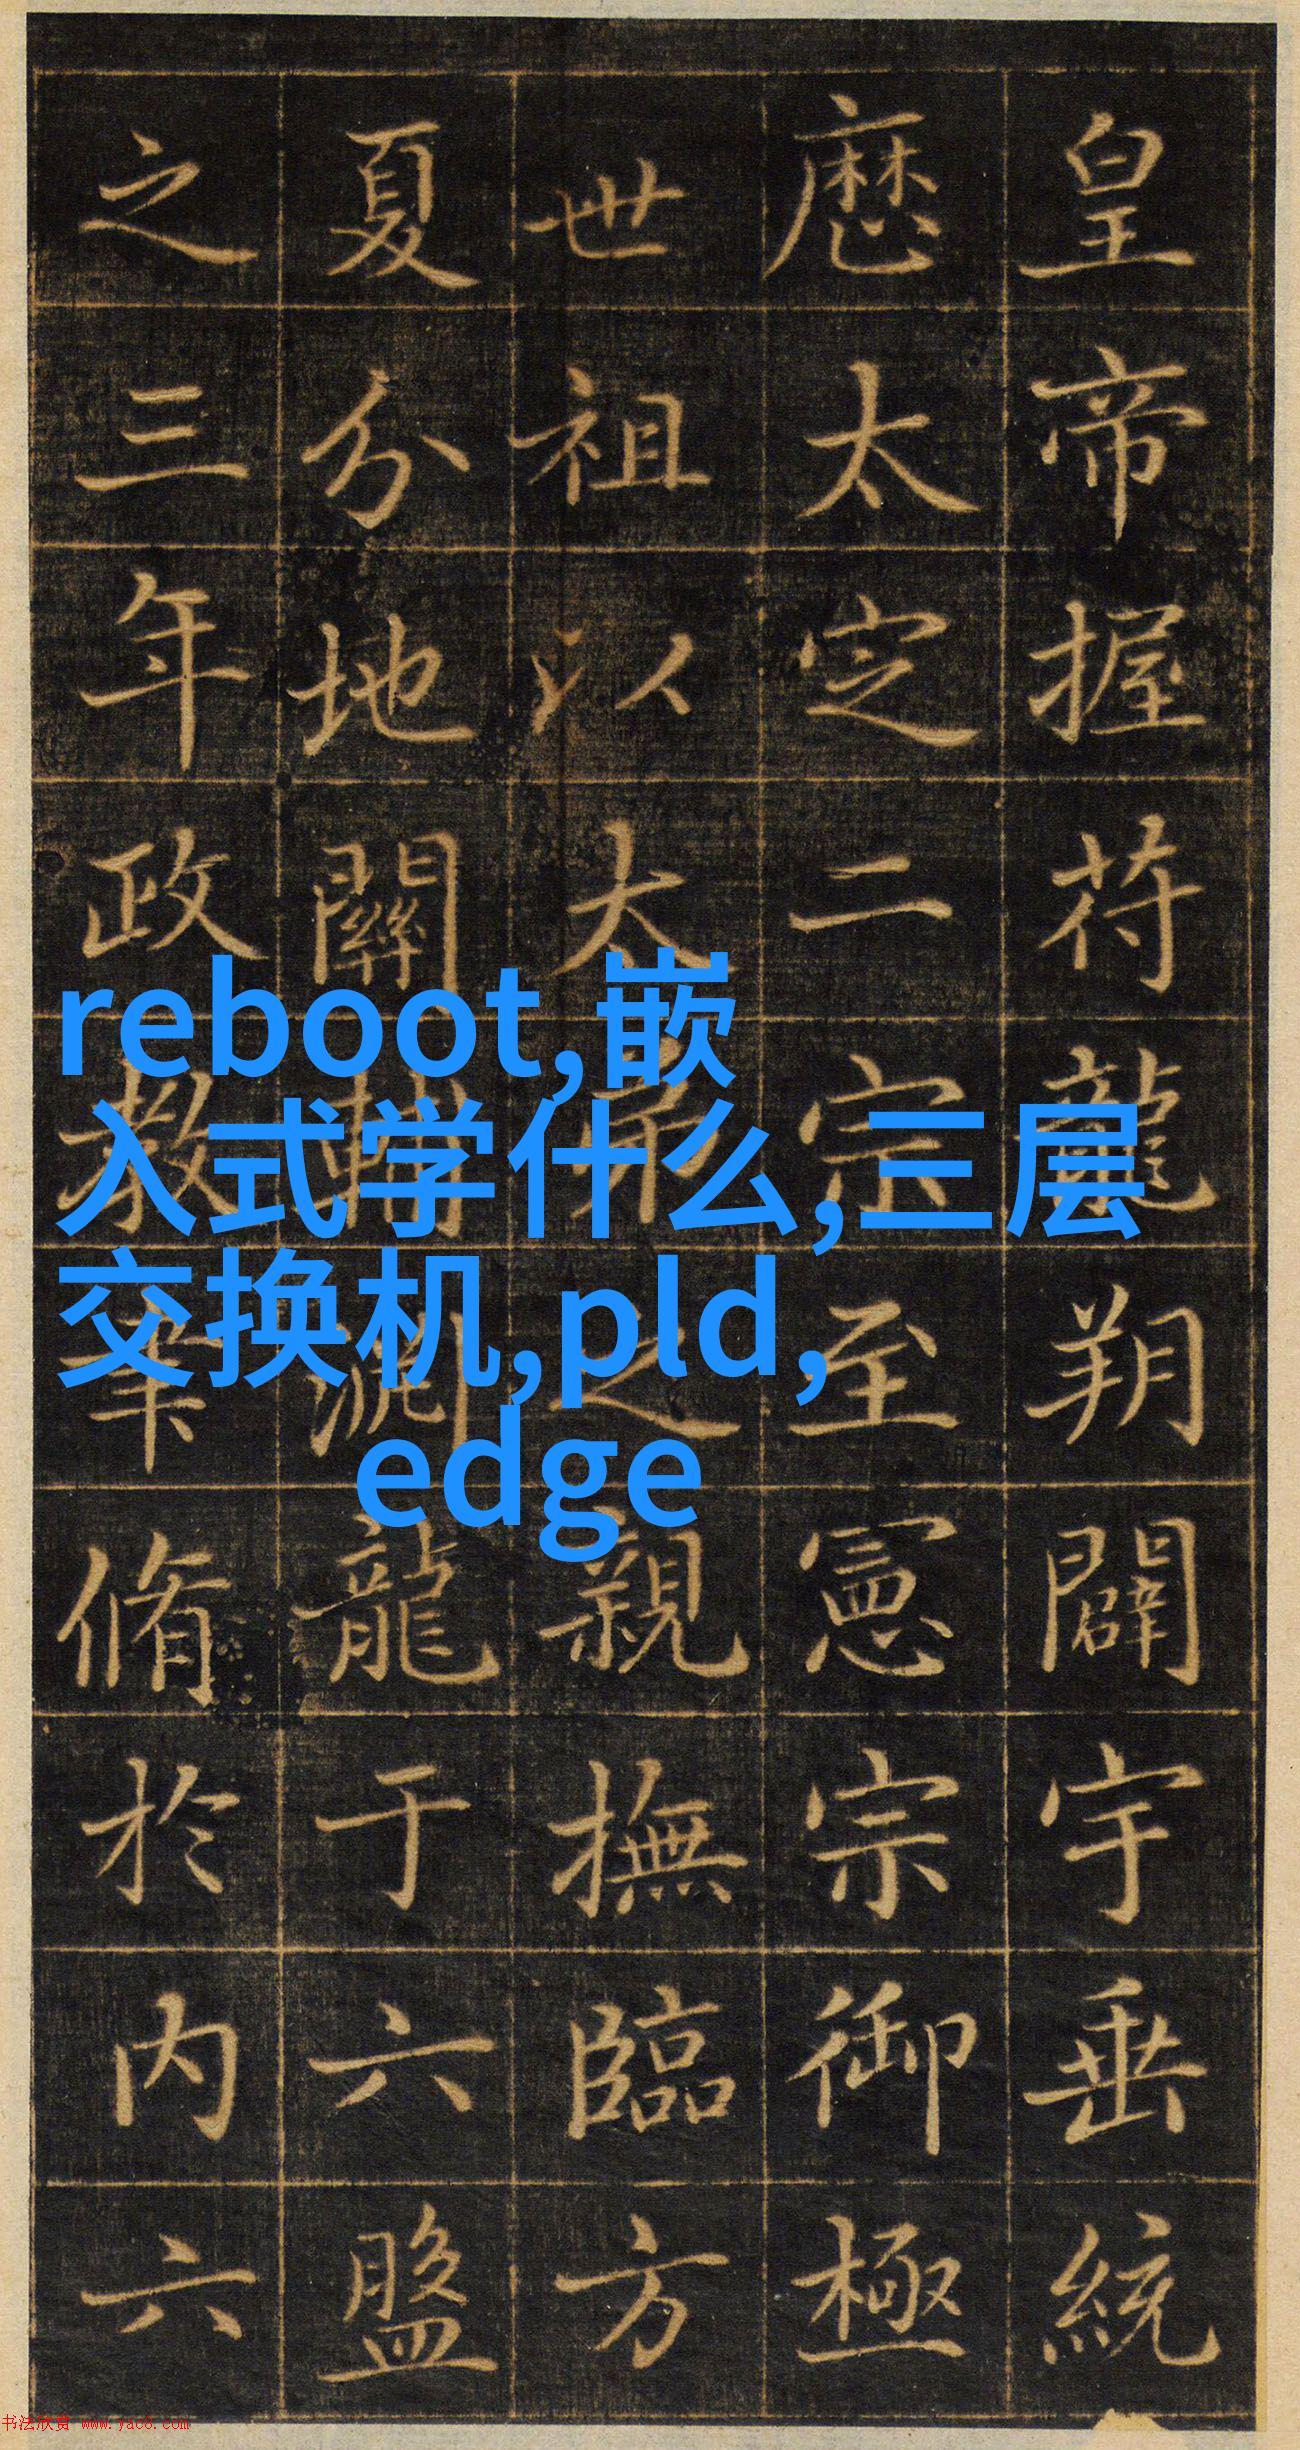 皇帝握符龍朔闢宇垂統
歷太定二宗至憲宗御極
世祖以太弟之親撫臨方
夏分地關輔澗龍于六盤
之三年政教筆脩於內六
reboot,嵌
入式学什么,三层
交换机,pld,
edge
书法欣赏 www.yac8.com